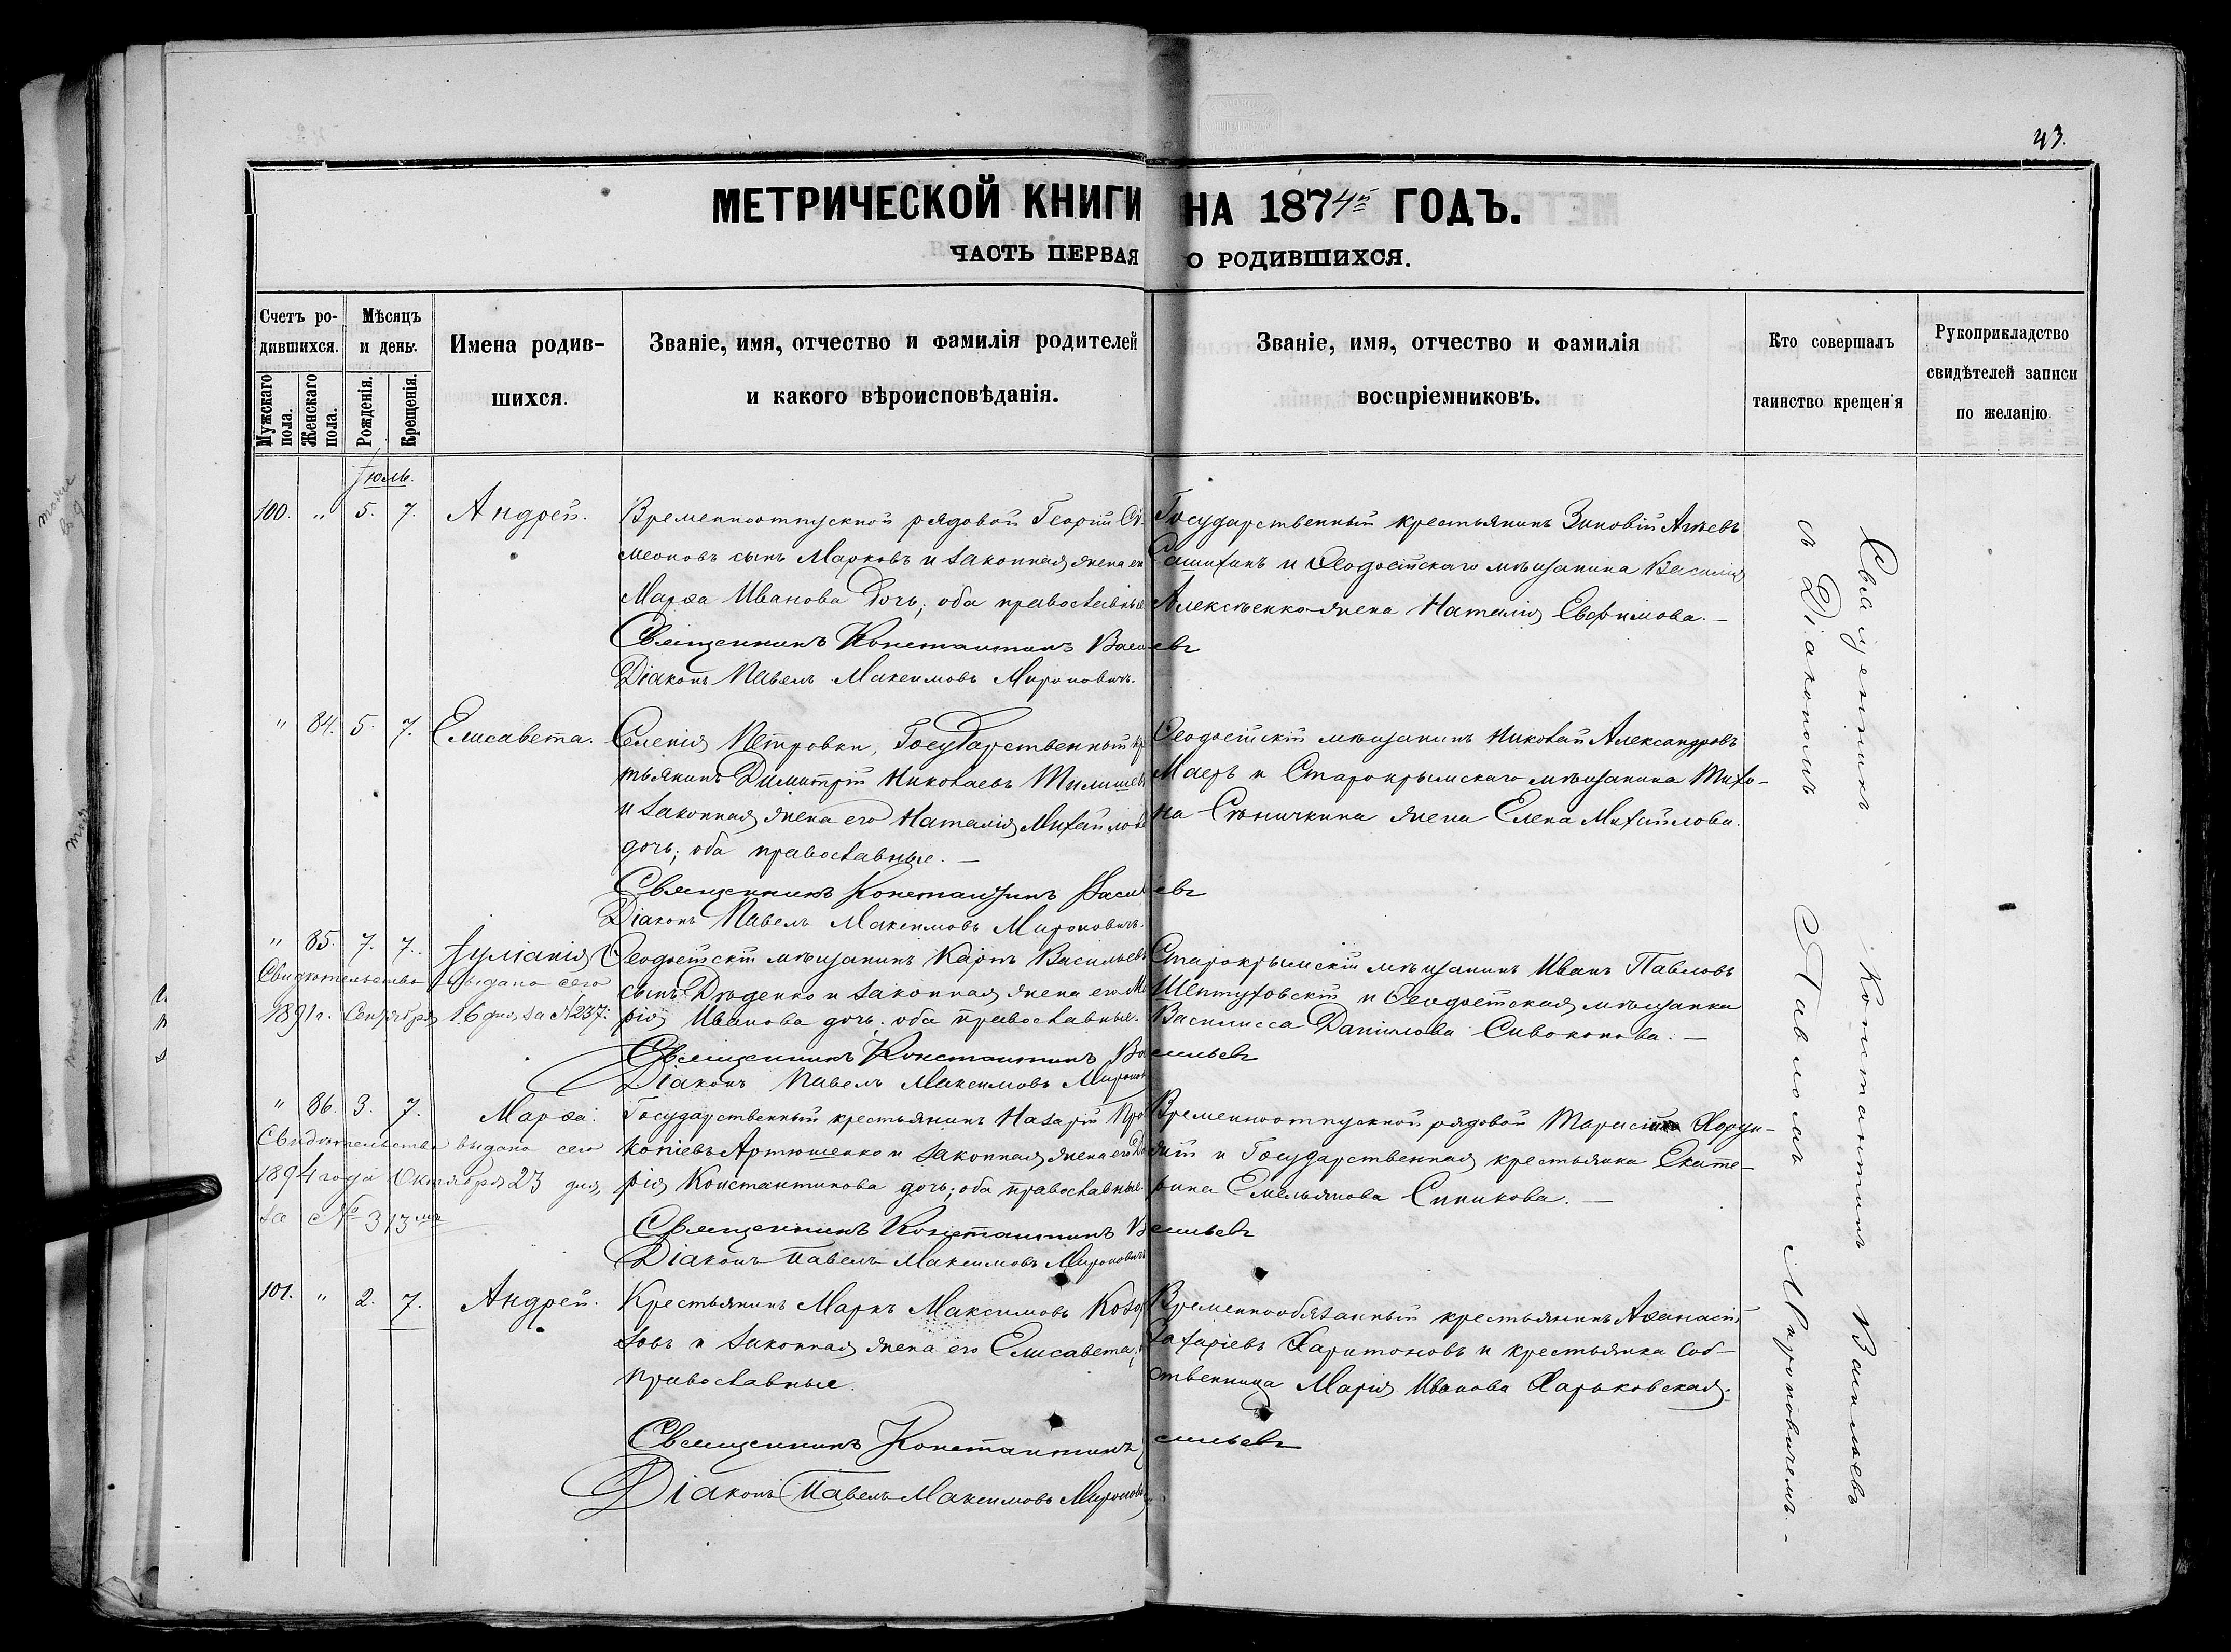 43.
МЕТРИЧЕСКОЙ КНИГИ НА 1874й ГОДЪ.
ЧАСТЬ ПЕРВАЯ О РОДИВШИХСЯ.
Счетъ родившихся.
Мужскаго пола.
Женскаго пола.
Мѣсяцъ и день.
Рожденія.
Крещенія.
Имена родившихся.
Званіе, имя, отчество и фамилія родителей
и какого вѣроисповѣданія.
Званіе, имя, отчество и фамилія
воспріемниковъ.
Кто совершалъ
таинство крещенія
Рукоприкладство
свидѣтелей записи
по желанію
Іюль.
100. " 5. 7. Андрей.
Временноотпускной рядовой Георгій Си-
меоновъ сынъ Марковъ и законная жена его
Марѳа Иванова дочь; оба православные
Священникъ Константинъ
Діаконъ Павелъ Максимовъ Мироновичъ.
Государственный крестьянинъ Зиновій
и Ѳеодосійскаго мѣщанина Василія
Алексѣенко жена Наталія Евфимова. —
" 84. 5. 7. Елисавета.
Селенія Петровки, Государственный кр
тьянинъ Димитрій Николаевъ
и законная жена его Наталія Михайлова
дочь; оба православные. —
Священникъ Константинъ
Діаконъ Павелъ Максимовъ Мироновичъ.
Ѳеодосійскій мѣщанинъ Николай Александровъ
Маеръ и Старокрымскаго мѣщанина Тихо-
на жена Елена Михайлова.
" 85. 7. 7. Іуліанія
Свидѣтельство выдано сего
1891 г. Сентября 16 дня за № 237.
Ѳеодосійскій мѣщанинъ Карпъ Васильевъ
сынъ Дѣденко и законная жена его Ма
рія Иванова дочь; оба православные.
Священникъ Константинъ Васильевъ
Діаконъ Павелъ Максимовъ
Старокрымскій мѣщанинъ Иванъ Павловъ
Шептуховскій и Ѳеодосійская мѣщанка
Василисса Даніилова Сивоконова. —
" 86. 3. 7. Марѳа.
Свидѣтельство выдано сего
1894 года Октября 23 дня,
за № 313мъ
Государственный крестьянинъ Назарій Про
копіевъ Артюшенко и законная жена его Да
рія Константинова дочь; оба православные.
Священникъ Константинъ Васильевъ
Діаконъ Павелъ Максимовъ Мироновичъ
Временноотпускной рядовой
и Государственная крестьянка Екате-
рина Емельянова Синикова. —
101. " 2. 7. Андрей.
Крестьянинъ Маркъ Максимовъ
и законная жена его Елисавета,
православные.
Священникъ Константинъ
Діаконъ Павелъ Максимовъ
Временнообязанный крестьянинъ Аѳанасій
Захаріевъ Харитоновъ и крестьянка Соб-
ственница Марія Иванова Харьковская.
Священникъ Константинъ Васильевъ
съ Діакономъ Павломъ Мироновичемъ. —